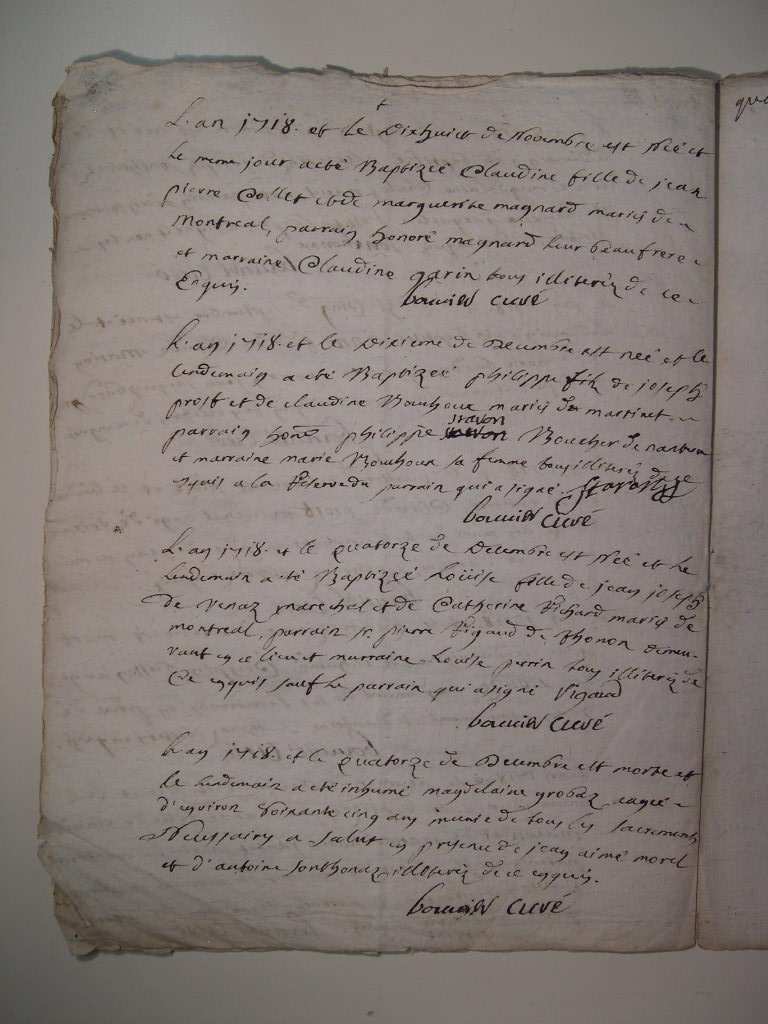 L'an 1718. et le Dixhuict de Novembre est Née et
le meme jour a eté Baptizeé Claudine fille de jean
pierre Collet et de marguerite magnard mariés de
Montreal, parrain honoré magnard leur beaufrere
et marraine Claudine garin tous illiterés de ce
Enquis.
curé
L'an 1718. et le Dixieme de Decembre est née et le
lendemain a eté Baptizeé philippe fils de joseph
prost et de claudine Bouchoux mariés de martinet
parrain hon. philippe stavon Boucher de nantua
et marraine marie Bouchoux sa femme tous illiterés de ce
enquis a la Reserve du parrain qui a signé.
curé
L'an 1718. et le quatorze de Decembre est Née et le
lendemain a eté Baptizeé Loüise fille de jean joseph
De Venaz marechal et de Catherine Richard mariés de
montreal, parrain sr. pierre Rigaud de Thonon demeu-
rant en ce lieu et marraine Louise perrin tous illiterés de
Ce enquis sauf le parrain qui a signé Rigaud
curé
L'an 1718 et le quatorze de Decembre est morte et
le lendemain a eté inhumé magdelaine grobaz aageé
d'environ soixante cinq ans munie de tous les sacrements
Necessaires a salut en presence de jean aimé morel
et d'antoine sonthonaz illiterés de ce enquis.
curé